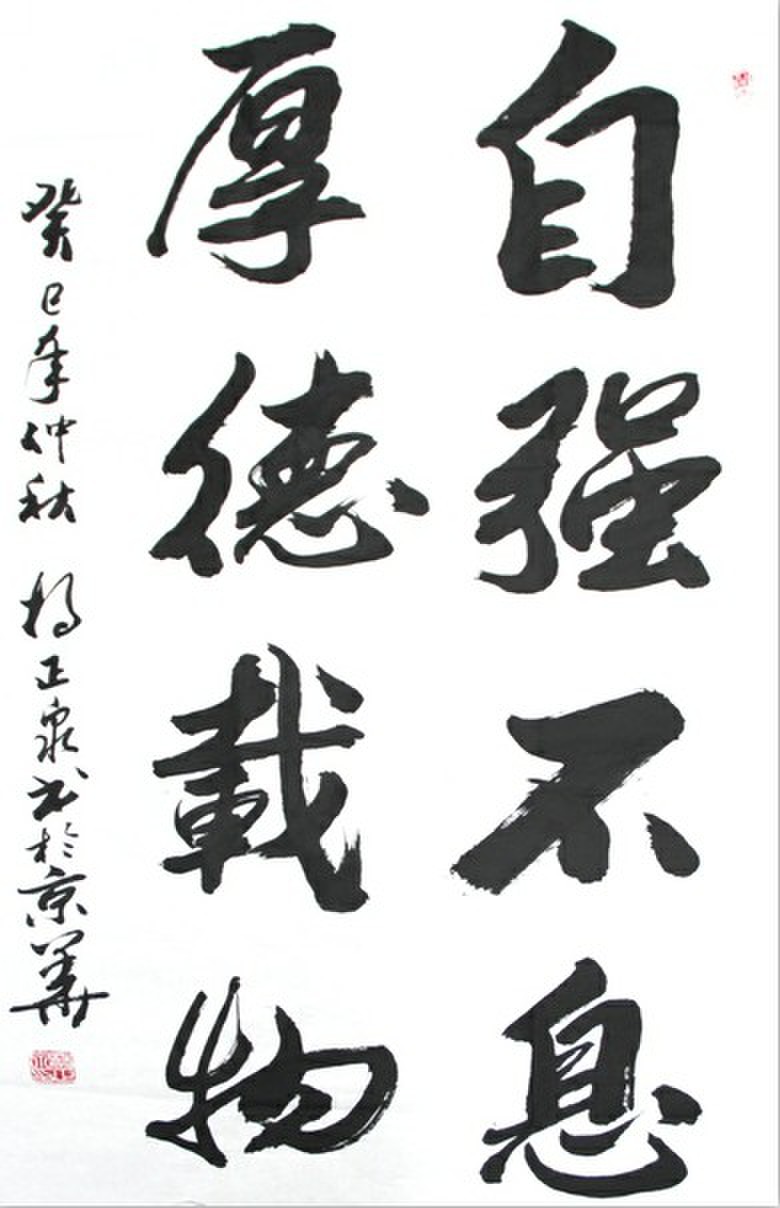 自强不息
厚德載物
癸巳年仲秋 楊正泉书於京華